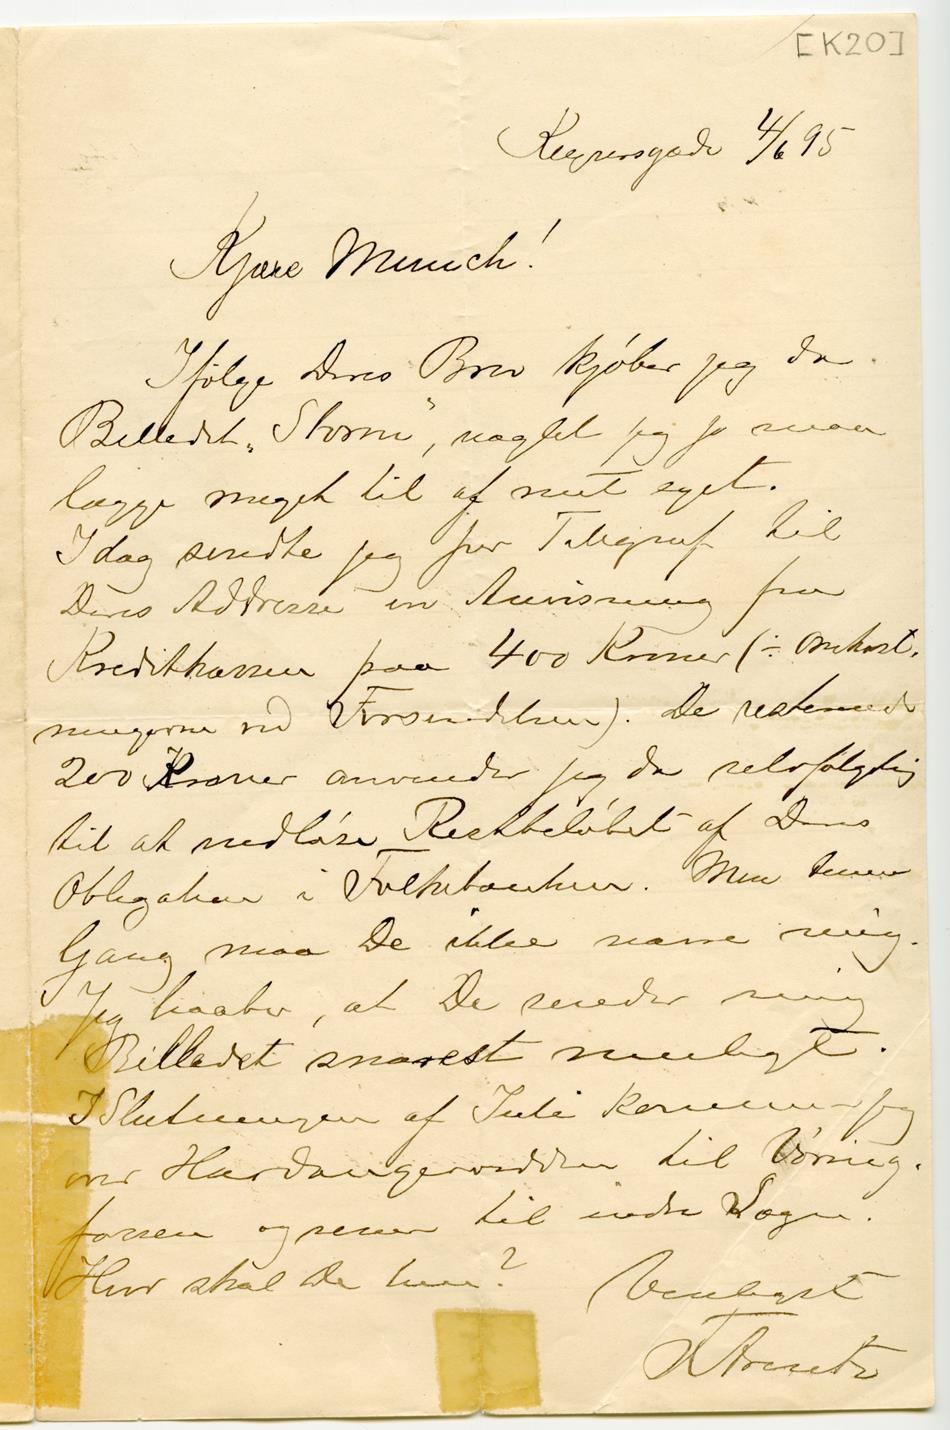 [K20]
Keysersgade 4/6 95
Kjære Munch!
Ifølge Deres Brev kjøber jeg da
Billedet „Storm“, uagtet jeg jo maa
lægge meget til af mit eget.
Idag sendte jeg per Telegraf til
Deres Addresse en Anvisning fra
Kreditkassen paa 400 Kroner (÷ Omkost.
ningerne ved Forsendelsen). De resterende
200 Kroner anvender jeg da selvfølgelig
til at indløse Restbeløbet af Deres
Obligation i Folkebanken. Men denne
Gang maa De ikke narre mig.
Jeg haaber, at De sender mig
Billedet snarest muligt.
I Slutningen af Juli kommer jeg
over Hardangervidden til Vøring.
fossen og senere til indre Sogn.
Hvor skal De hen?
Venligst